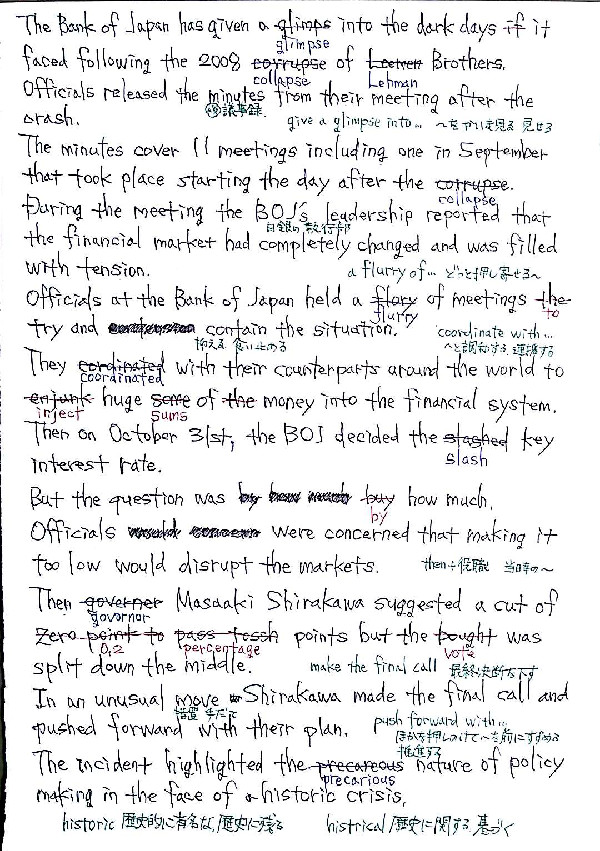 The Bank of Japan has given a glimps into the dark days if it
glimpse
faced following the 2008 corrupse of Leeman Brothers.
collapse Lehman
Officials released the minutes from their meeting after the
議事録 give a glimpse into... ～を 見る 見せる
crash.
The minutes cover 11 meetings including one in September
that took place starting the day after the corrupse.
collapse
During the meeting the BOJ's leadership reported that
日銀の執行部
the financial market had completely changed and was filled
with tension. a flurry of... どっと押し寄せる～
Officials at the Bank of Japan held a flary of meetings the
flurry to
try and contain the situation. coordinate with...
抑える 食い止める ～と調和する, 連携する
They cordinated with their counterparts around the world to
coordinated
enjunk huge some of the money into the financial system.
inject sums
Then on October 31st, the BOJ decided the slashed key
slash
interest rate.
But the question was buy how much.
by
Officials were concerned that making it
too low would disrupt the markets. then+役職 当時の～
Then governer Masaaki Shirakawa suggested a cut of
governor
zero point to points but the bought was
0.2 percentage vote
split down the middle. make the final call 最終決断を下す
In an unusual move Shirakawa made the final call and
措置 手だて
pushed forward with their plan. push forward with...
ほかを押しのけて～を前にすすめる
推進する
The incident highlighted the precareous nature of policy
precarious
making in the face of a historic crisis.
historic 歴史的に有名な, 歴史に残る histrical 歴史に関する, 基づく